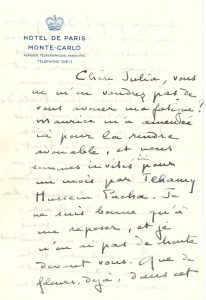 HOTEL DE PARIS
MONTE-CARLO
ADRESSE TÉLÉGRAPHIQUE PARISOTEL
TÉLÉPHONE
Chère Julia, vous
ne m'en voudrez pas de
vous avouer ma fatigue?
Maurice m'a amenée
ici pour la rendre
avouable, et nous
sommes invités pour
un mois par Ilhamy
Hussein Pacha. Je
ne suis bonne qu'à
me reposer, et je
n'en ai pas de honte
devant vous. Que de
fleurs, déjà, dans cet